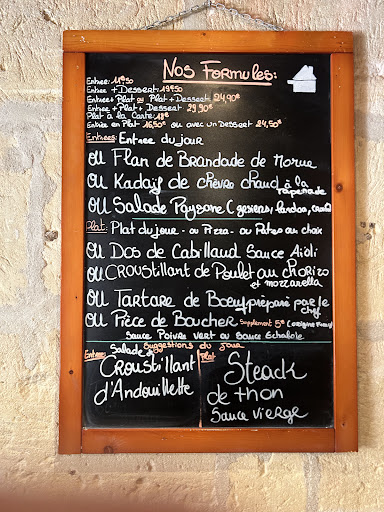 Nos Formules:
Entrée: 11€50
Entrée + Dessert: 19€50
Entrée + Plat ou Plat + Dessert: 24,90€
Entrée + Plat + Dessert 29,90€
Plat à la Carte 18€
Entrée en Plat 16,50€ ou avec un Dessert 24,50€
Entrées: Entrée du jour
ou Flan de Brandade de Morue
ou Kadaïf de chèvre chaud à la
tapenade
ou Salade Paysane (gesiers, lardon,
Plat: Plat du jour - ou Pizza - ou Pates au choix
ou Dos de Cabillaud Sauce Aïoli
ou Croustillant de Poulet au Chorizo
et mozzarella
ou Tartare de Bœuf préparé par le
chef
ou Pièce de Boucher Supplement 5€ (origine
Sauce Poivre Vert ou Sauce Echalote
Suggestions du jour
Entrée: Salade de
Croustillant
d'Andouillette
Plat
Steack
de thon
Sauce Vierge